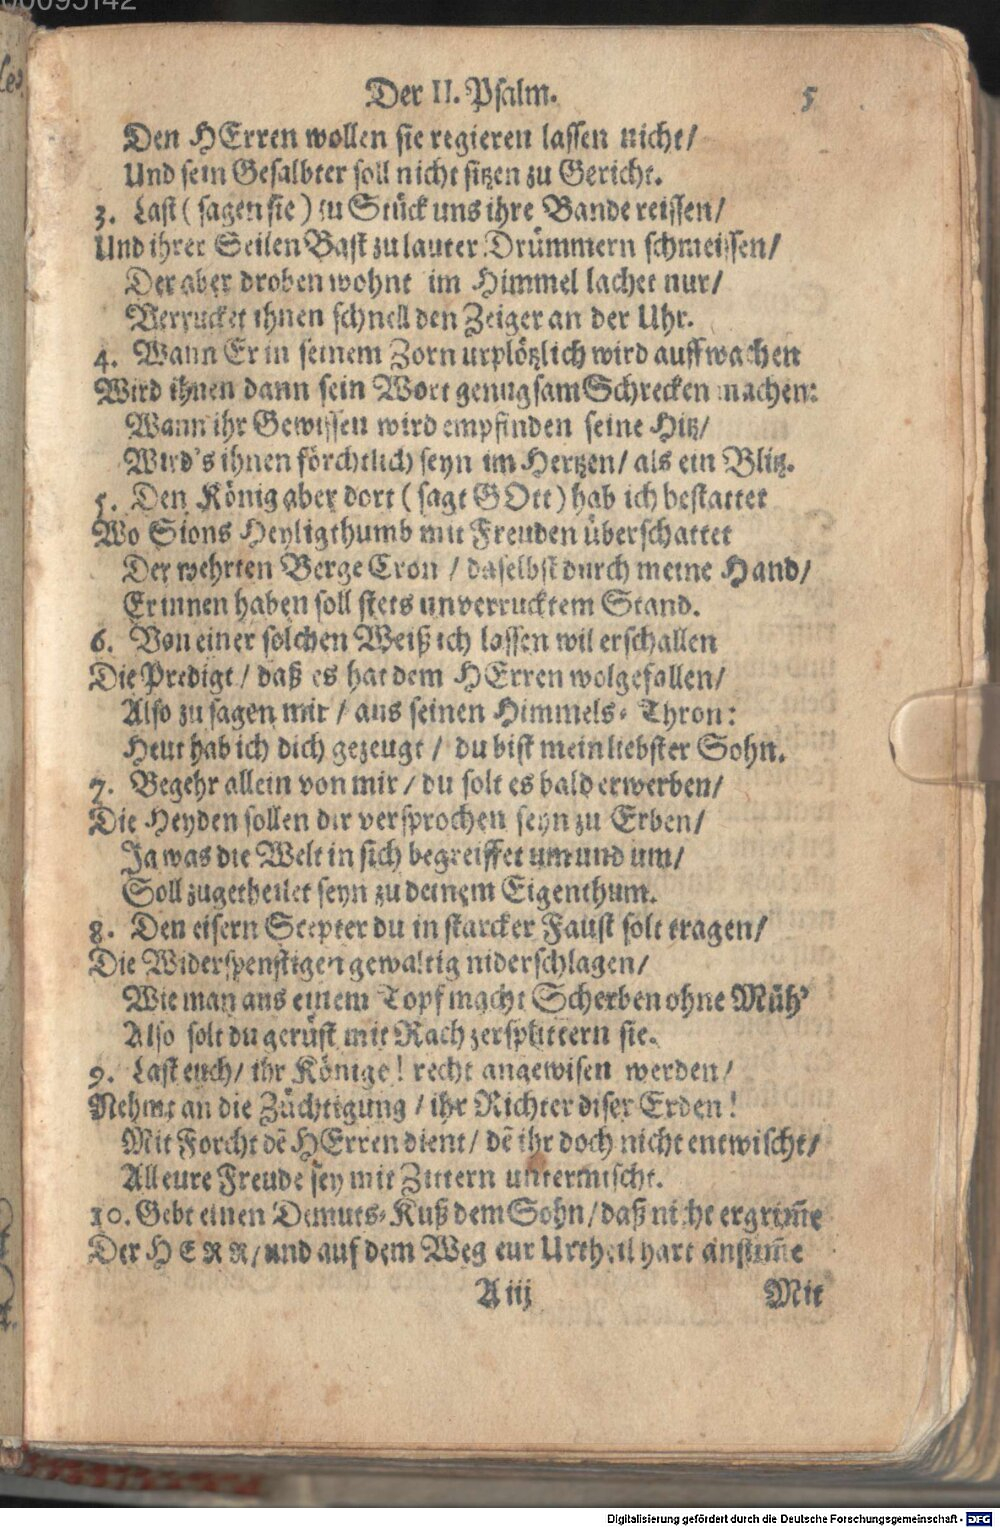 00095142
Der II. Psalm. 5
Den HErren wollen sie regieren lassen nicht/
Und sein Gesalbter soll nicht sitzen zu Gericht.
3. Last (sagen sie) zu Stück uns ihre Bande reissen/
Und ihrer Seilen Bast zu lauter Drümmern schmeissen/
Der aber droben wohnt im Himmel lachet nur/
Verrucket ihnen schnell den Zeiger an der Uhr.
4. Wann Er in seinem Zorn urplötzlich wird auffwachen
Wird ihnen dann sein Wort genugsam Schrecken machen:
Wann ihr Gewissen wird empfinden seine Hitz/
Wird's ihnen förchtlich seyn im Hertzen/ als ein Blitz.
5. Den König aber dort (sagt GOtt) hab ich bestattet
Wo Sions Heyligthumb mit Freuden überschattet
Der wehrten Berge Cron / daselbst durch meine Hand/
Er innen haben soll stets unverrucktem Stand.
6. Von einer solchen Weiß ich lassen wil erschallen
Die Predigt / daß es hat dem HErren wolgefallen/
Also zu sagen mir / aus seinen Himmels-Thron:
Heut hab ich dich gezeugt / du bist mein liebster Sohn.
7. Begehr allein von mir / du solt es bald erwerben/
Die Heyden sollen dir versprochen seyn zu Erben/
Ja was die Welt in sich begreiffet um und um/
Soll zugetheilet seyn zu deinem Eigenthum.
8. Den eisern Scepter du in starcker Faust solt tragen/
Die Widerspenstigen gewaltig niderschlagen/
Wie man aus einem Topf macht Scherben ohne Müh'
Also solt du gerüst mit Rach zersplittern sie.
9. Last euch/ ihr Könige! recht angewisen werden/
Nehmt an die Züchtigung / ihr Richter diser Erden!
Mit Forcht dē HErren dient/ dē ihr doch nicht entwischt/
All eure Freude sey mit Zittern untermischt.
10. Gebt einen Demuts-Kuß dem Sohn/ daß nicht ergrim̄e
Der HERR/ und auf dem Weg eur Urtheil hart anstim̄e
A iij Mit
Digitalisierung gefördert durch die Deutsche Forschungsgemeinschaft - DFG